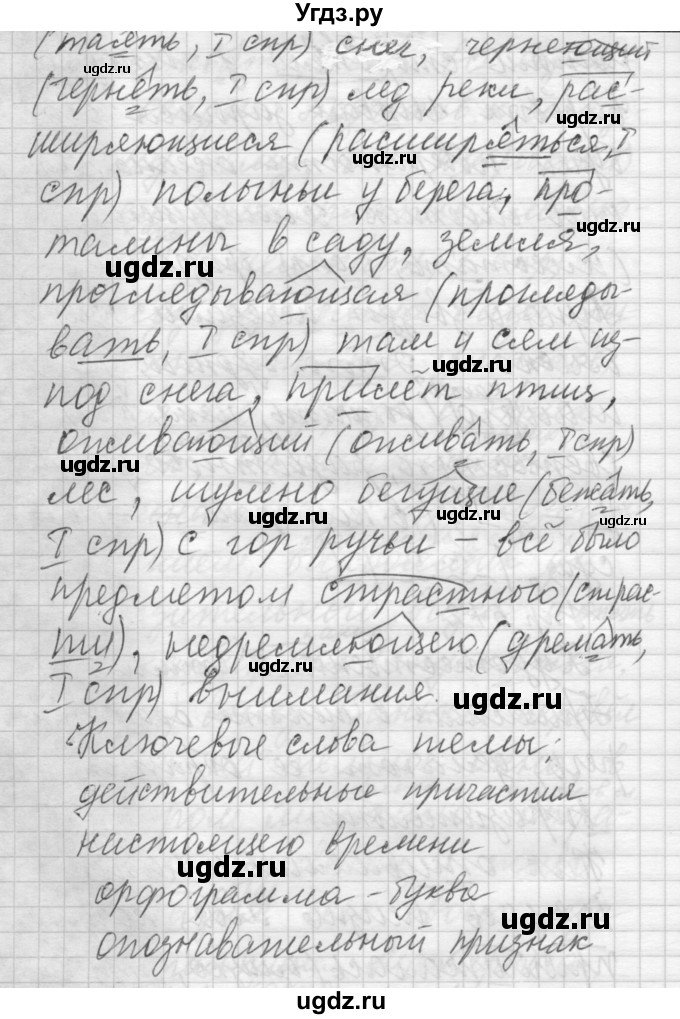 Угдз.ру
(таять, I спр) снег, чернеющий
ugdz.ru
(чернеть, I спр) лед реки, рас-
ugdz.ru
ugdz.ru
ширяющиеся (расширяться, I
ugdz.ru
спр) полыньи у берега, про-
талины в саду, земля,
ugdz.ru
ugdz.ru
проглядывающая (прогляды-
вать, I спр) там и сям из-
ugdz.ru
под снега, прилёт птиц,
оживающий (оживать, I спр)
ugdz.ru
ugdz.ru
лес, шумно бегущие (бежать,
ugdz.ru
ugdz.ru
I спр) с гор ручьи – всё было
предметом страстного (страс-
ugdz.ru
ти), недремлющего (дремать,
ugdz.ru
I спр) внимания.
ugdz.ru
Ключевые слова темы:
действительные причастия
настоящего времени
ugdz.ru
орфограмма – буква
ugdz.ru
опознавательный признак
ugdz.ru